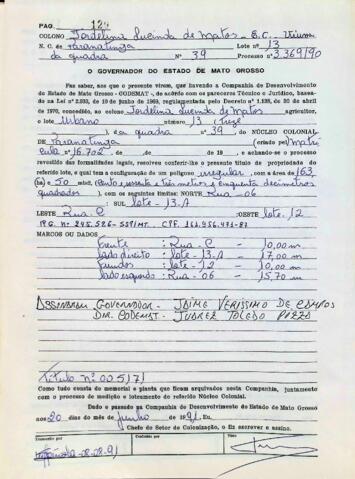 PAG. 129
COLONO Jordelina Lucinda de Matos - B.C., Viuva
N. C. de Paranatinga Lote nº 13
da quadra Nº 39 Processo nº 3.369/90
O GOVERNADOR DO ESTADO DE MATO GROSSO
Faz saber, aos que o presente virem, que havendo a Companhia de Desenvolvimento
do Estado de Mato Grosso - CODEMAT -, de acordo com os pareceres Técnico e Jurídico, basea-
do na Lei nº 2.933, de 10 de junho de 1969, regulamentada pelo Decreto nº 1.138, de 30 de abril
de 1970, concedido, ao colono Jordelina Lucinda de Matos agricultor,
o lote Urbano número 13 (Treze
), na quadra nº 39 do NÚCLEO COLONIAL
DE Paranatinga (criado pe Matri
cula nº 16.702 de, de de 19 , e achando-se o processo
revestido das formalidades legais, resolveu conferir-lhe o presente título de propriedade
do referido lote, o qual tem a configuração de um polígono irregular, com a área de 163
(ha) e 50 mts² (Cento e sessenta e três metros e cinquenta decímetros
quadrados), com os seguintes limites: NORTE Rua - 06
: SUL lote - 13.A
LESTE Rua - C :OESTE lote. 12
R.G. Nº 245.526 - SSP/MT. CPF. 161.956.471-87
MARCOS OU DADOS
frente : Rua - C - 10,00 m
lado direito : lote - 13.A - 17,00 m
fundos : lote - 12 - 10,00 m
lado esquerdo : Rua - 06 - 15,70 m
ASSINARAM GOVERNADOR - JAIME VERISSIMO DE CAMPOS
DIR. CODEMAT - JUAREZ TOLEDO PIZZA
Título Nº 00517/
Como tudo consta do memorial e planta que ficam arquivados nesta Companhia, juntamente
com o processo de medição e loteamento do referido Núcleo Colonial.
Dado e passado na Companhia de Desenvolvimento do Estado de Mato Grosso
aos 20 dias do mês de junho de 1991. Eu,
Chefe do Setor de Colonização, o fiz escrever e assino.
Visto
08.08.91